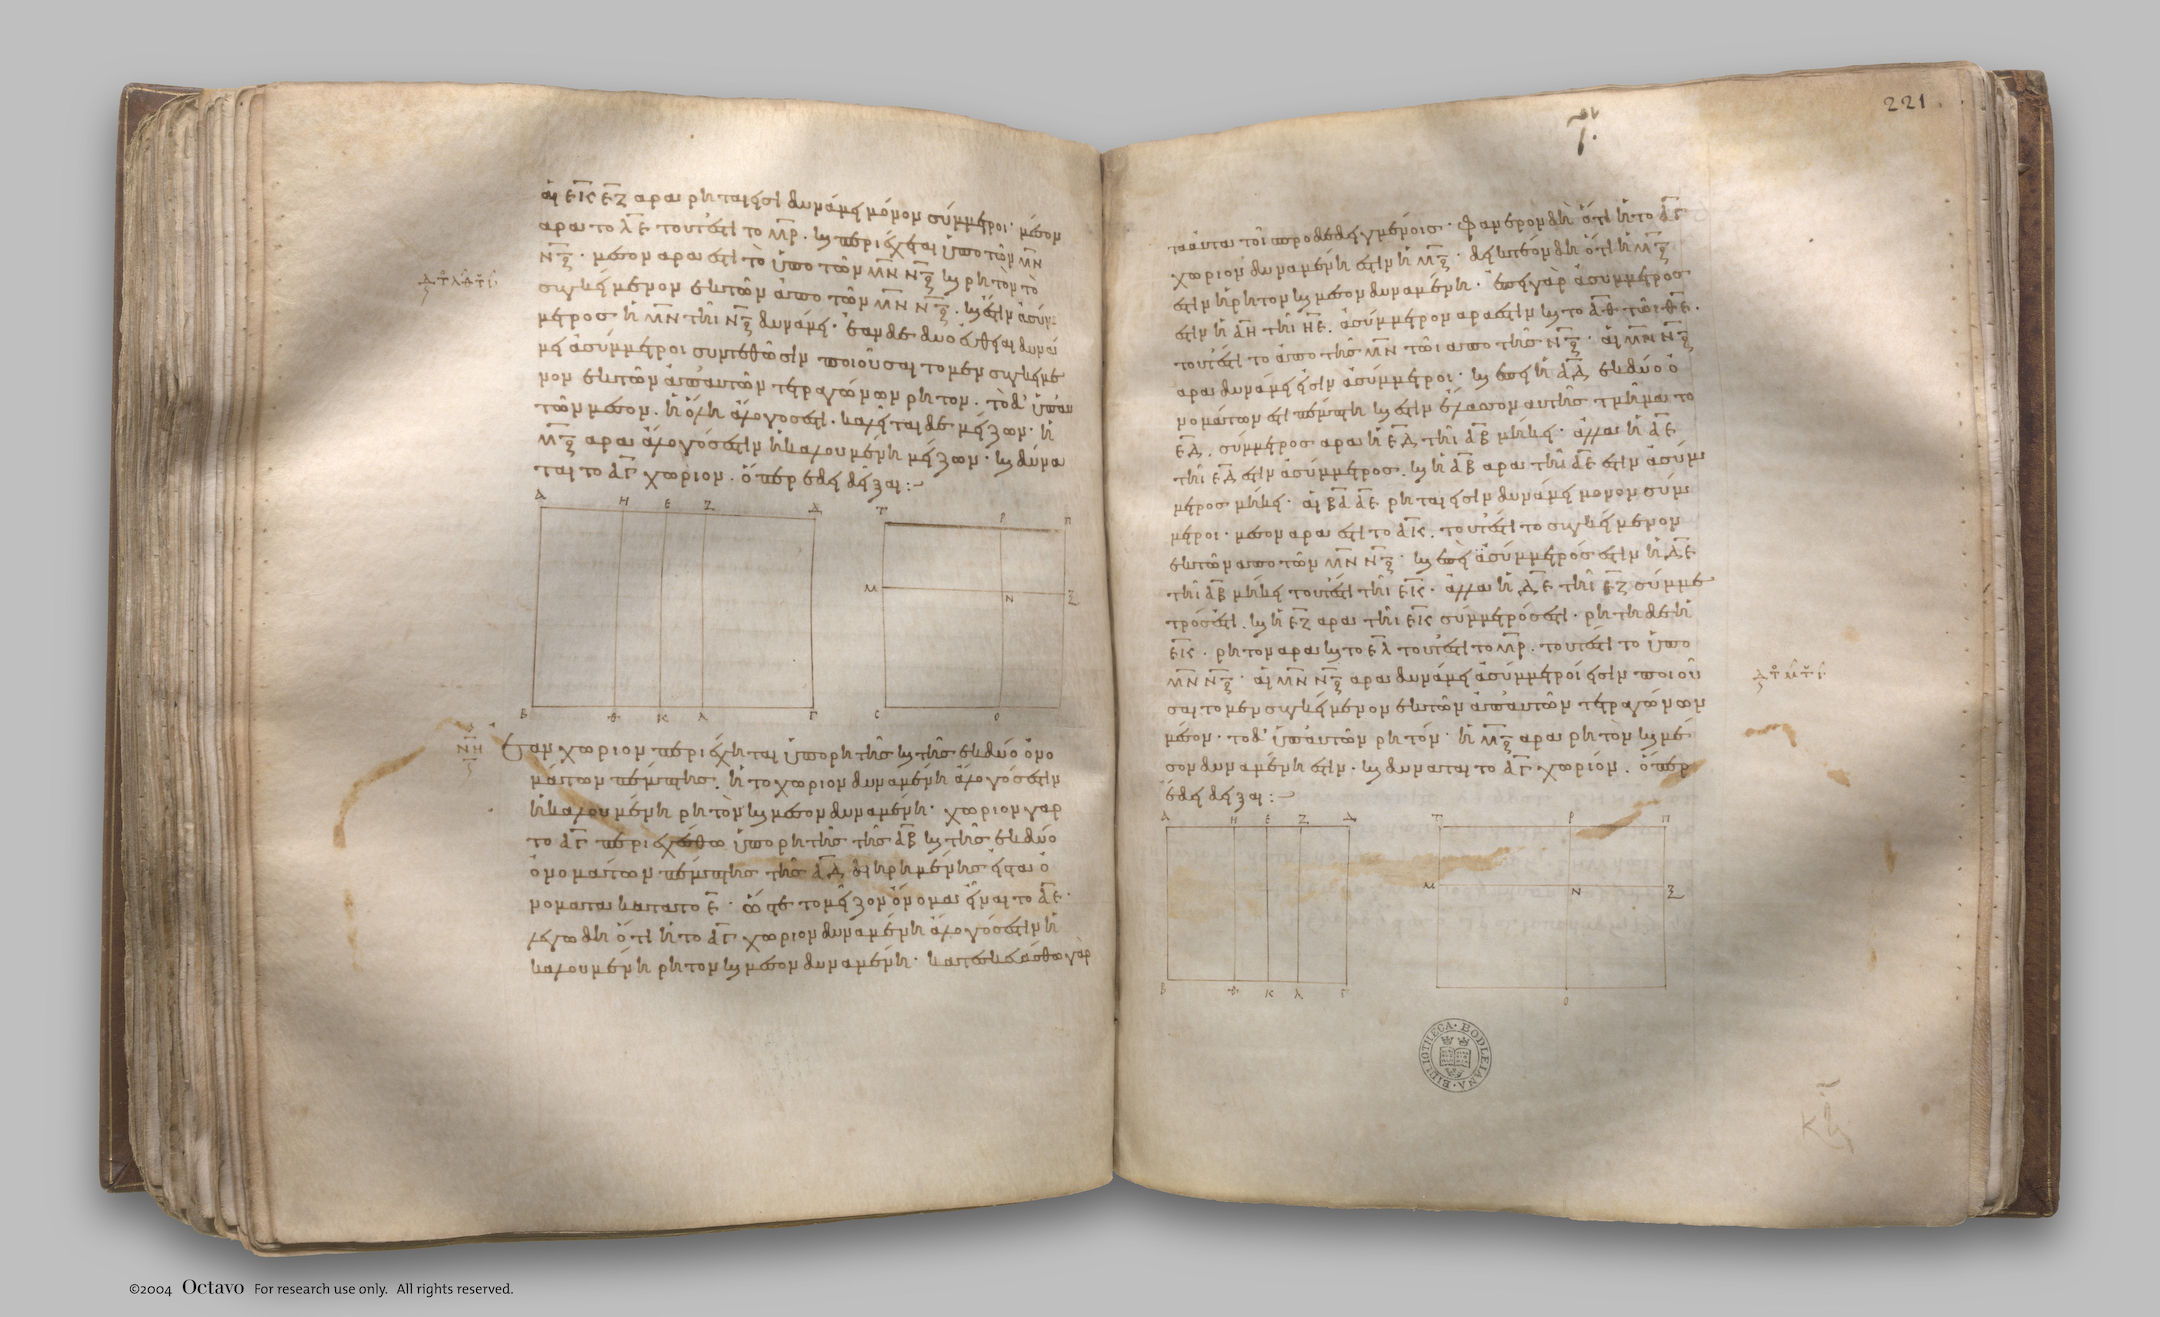 αἱ ΕΚ ΕΖ ἄρα ῥηταί εἰσι δυνάμει μόνον σύμμετροι· μέσον
ἄρα τὸ ΛΕ τουτέστι τὸ ΜΡ· καὶ περιέχεται ὑπὸ τῶν ΜΝ
ΝΞ· μέσον ἄρα ἐστὶ τὸ ὑπὸ τῶν ΜΝ ΝΞ καὶ ῥητὸν τὸ
συγκείμενον ἐκ τῶν ἀπὸ τῶν ΜΝ ΝΞ· καὶ ἐστιν ἀσύμ
μετρος ἡ ΜΝ τῆι ΝΞ δυνάμει· ἐὰν δὲ δύο εὐθεῖαι δυνά
μει ἀσύμμετροι συντεθῶσιν ποιοῦσαι τὸ μὲν συγκείμε
νον ἐκ τῶν ἀπ' αὐτῶν τετραγώνων ῥητόν· τὸ δ' ὑπ' αυ
τῶν μέσον· ἡ ὅλη ἄλογός ἐστι· καλεῖται δὲ μείζων· ἡ
ΜΞ ἄρα ἄλογός ἐστιν ἡ καλουμένη μείζων· καὶ δύνα
ται τὸ ΑΓ χωρίον· ὅπερ ἔδει δεῖξαι:~
Α Η Ε Ζ Δ Τ Ρ Π
Μ Ν Ξ
Β Θ Κ Λ Γ С Ο
ΝΗ Ἐὰν χωρίον περιέχηται ὑπὸ ῥητῆς καὶ τῆς ἐκ δύο ὀνο
μάτων πέμπτης· ἡ τὸ χωρίον δυναμένη ἄλογός ἐστιν
ἡ καλουμένη ῥητὸν καὶ μέσον δυναμένη· χωρίον γὰρ
τὸ ΑΓ περιεχέσθω ὑπὸ ῥητῆς τῆς ΑΒ καὶ τῆς ἐκ δύο
ὀνομάτων πέμπτης τῆς ΑΔ διηρημένης εἰς τὰ ὀ
νόματα κατὰ τὸ Ε· ὥστε τὸ μεῖζον ὄνομα εἶναι τὸ ΑΕ·
λέγω δὴ ὅτι ἡ τὸ ΑΓ χωρίον δυναμένη ἄλογός ἐστιν ἡ
καλουμένη ῥητὸν καὶ μέσον δυναμένη· κατεσκευάσθω γὰρ
221
τὰ αὐτὰ τοῖς προδεδειγμένοις· φανερὸν δὴ ὅτι ἡ τὸ ΑΓ
χωρίον δυναμένη ἐστὶν ἡ ΜΞ· δεικτέον δὴ ὅτι ἡ ΜΞ
ἐστιν ἡ ῥητὸν καὶ μέσον δυναμένη· ἐπεὶ γὰρ ἀσύμμετρος
ἐστιν ἡ ΑΗ τῆι ΗΕ· ἀσύμμετρον ἄρα ἐστὶν καὶ τὸ ΑΘ τῶι ΘΕ·
τουτέστι τὸ ἀπὸ τῆς ΜΝ τῶι ἀπὸ τῆς ΝΞ· αἱ ΜΝ ΝΞ
ἄρα δυνάμει εἰσὶν ἀσύμμετροι· καὶ ἐπεὶ ἡ ΑΔ ἐκ δύο ὀ
νομάτων ἐστὶ πέμπτη καὶ ἐστιν ἔλασσον αὐτῆς τμῆμα τὸ
ΕΔ· σύμμετρος ἄρα ἡ ΕΔ τῆι ΑΒ μήκει· ἀλλὰ ἡ ΑΕ
τῆι ΕΔ ἐστιν ἀσύμμετρος· καὶ ἡ ΑΒ ἄρα τῆι ΑΕ ἐστιν ἀσύμ
μετρος μήκει· αἱ ΒΑ ΑΕ ῥηταί εἰσιν δυνάμει μόνον σύμ
μετροι· μέσον ἄρα ἐστὶ τὸ ΑΚ· τουτέστι τὸ συγκείμενον
ἐκ τῶν ἀπὸ τῶν ΜΝ ΝΞ· καὶ ἐπεὶ ἀσύμμετρός ἐστιν ἡ ΔΕ
τῆι ΑΒ μήκει τουτέστι τῆι ΕΚ· ἀλλὰ ἡ ΔΕ τῆι ΕΖ σύμμε
τρός ἐστι· καὶ ἡ ΕΖ ἄρα τῆι ΕΚ σύμμετρός ἐστι· ῥητὴ δὲ ἡ
ΕΚ· ῥητὸν ἄρα καὶ τὸ ΕΛ τουτέστι τὸ ΜΡ· τουτέστι τὸ ὑπὸ
ΜΝ ΝΞ· αἱ ΜΝ ΝΞ ἄρα δυνάμει ἀσύμμετροί εἰσιν ποιοῦ
σαι τὸ μὲν συγκείμενον ἐκ τῶν ἀπ' αὐτῶν τετραγώνων
μέσον· τὸ δ' ὑπ' αὐτῶν ῥητόν· ἡ ΜΞ ἄρα ῥητὸν καὶ μέ
σον δυναμένη ἐστίν· καὶ δύναται τὸ ΑΓ χωρίον· ὅπερ
ἔδει δεῖξαι:~
Α Η Ε Ζ Δ Τ Ρ Π
Μ Ν Ξ
Β Θ Κ Λ Γ Ο
BIBLIOTHECA·BODLEIANA·
©2004 Octavo For research use only. All rights reserved.